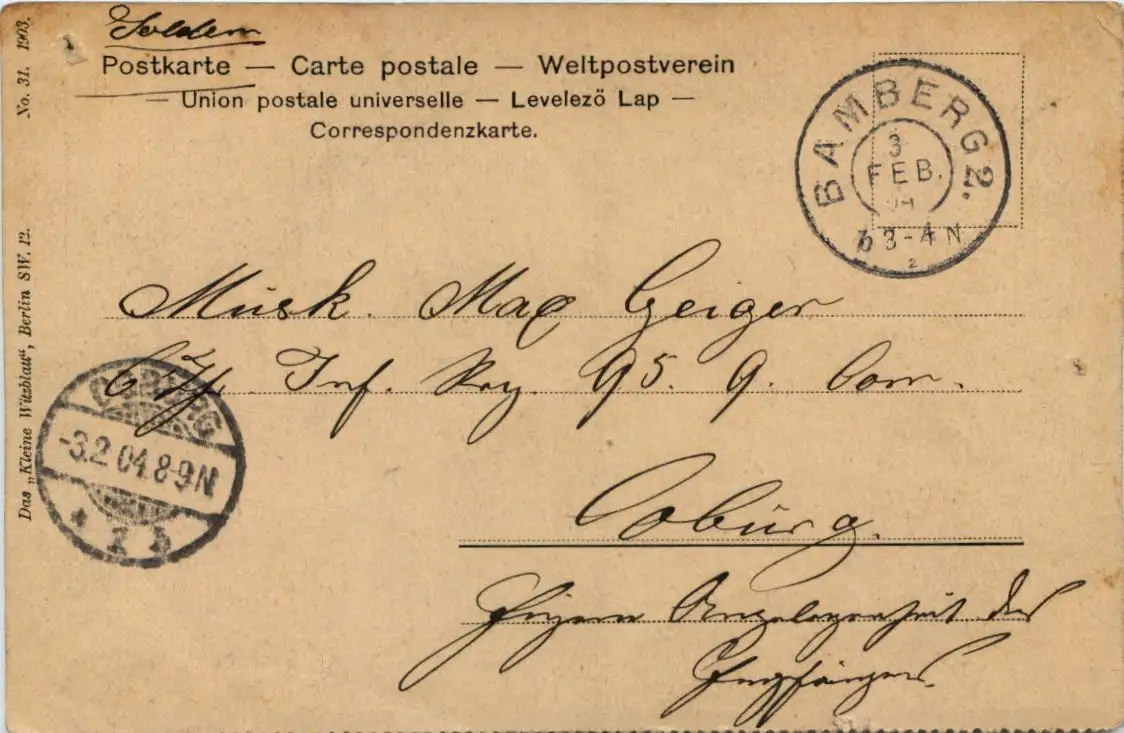 Soldaten
Postkarte — Carte postale — Weltpostverein
— Union postale universelle — Levelezö Lap —
Correspondenzkarte.
No. 31. 1903.
Das „Kleine Witzblatt“, Berlin SW. 12.
BAMBERG 2.
3
FEB.
3-4 N
2
Musk. Max Geiger
6. Inf. Reg. 95. 9. Com.
Coburg.
Eigene Angelegenheit des
Empfängers.
COBURG
-3.2.04.8-9N
* 1 b